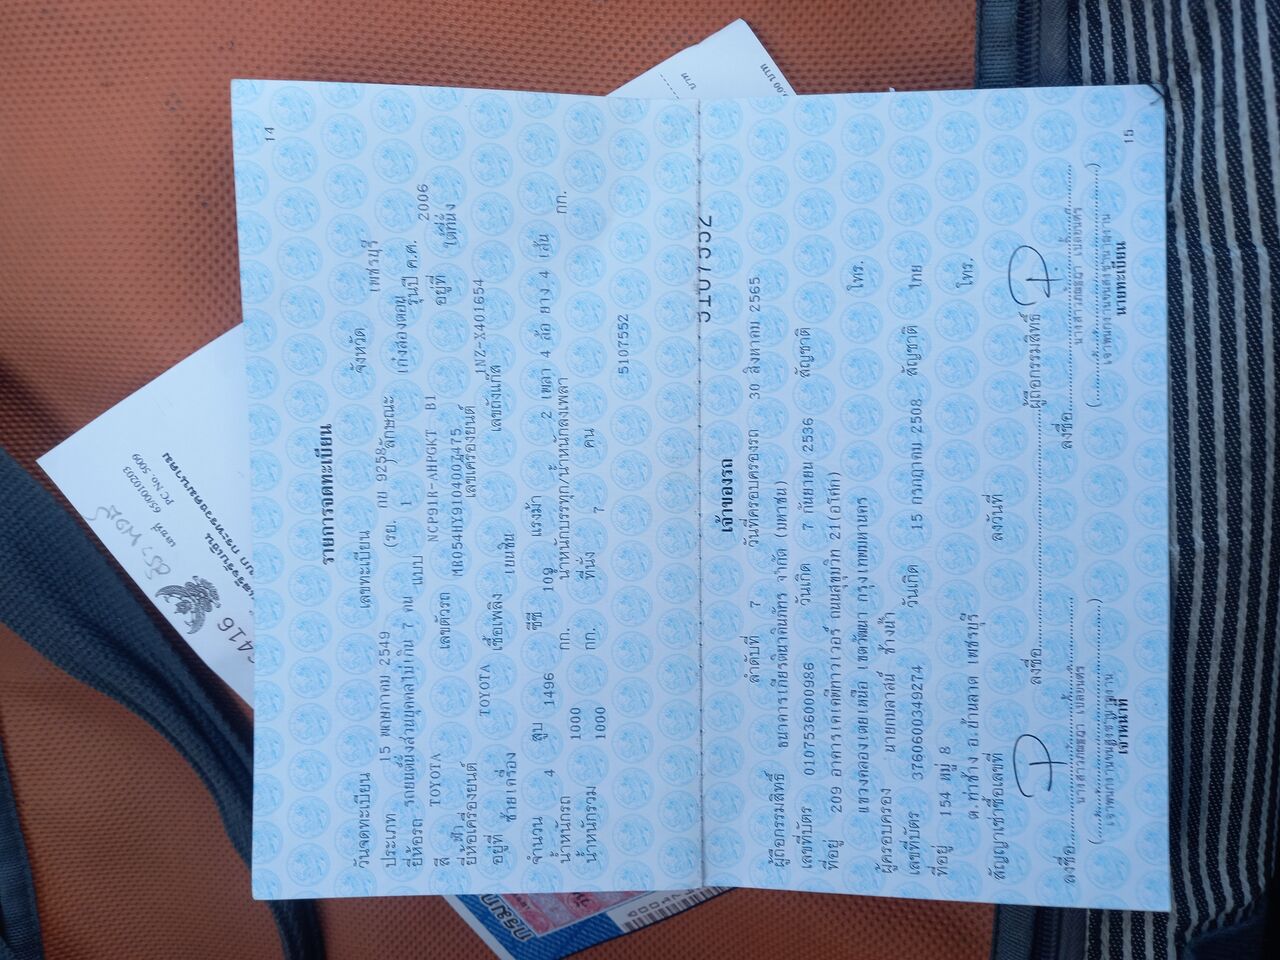 14
รายการจดทะเบียน
วันจดทะเบียน 15 พฤษภาคม 2549 เลขทะเบียน กย 9258 จังหวัด เพชรบุรี
ประเภท รถยนต์นั่งส่วนบุคคลไม่เกิน 7 คน (รย. 1 ) ลักษณะ เก๋งสองตอน
ยี่ห้อรถ TOYOTA แบบ NCP91R-AHPGKT B1 รุ่นปี ค.ศ. 2006
สี ฟ้า เลขตัวรถ MR054HY9104007475 อยู่ที่ ใต้ที่นั่ง
ยี่ห้อเครื่องยนต์ TOYOTA เลขเครื่องยนต์ 1NZ-X401654
อยู่ที่ ซ้ายเครื่อง เชื้อเพลิง เบนซิน เลขถังแก๊ส
จำนวน 4 สูบ 1496 ซีซี 109 แรงม้า 2 เพลา 4 ล้อ ยาง 4 เส้น
น้ำหนักรถ 1000 กก. น้ำหนักบรรทุก/น้ำหนักลงเพลา กก.
น้ำหนักรวม 1000 กก. ที่นั่ง 7 คน
5107552
5107552
เจ้าของรถ
ลำดับที่ 7 วันที่ครอบครองรถ 30 สิงหาคม 2565
ผู้ถือกรรมสิทธิ์ ธนาคารเกียรตินาคินภัทร จำกัด (มหาชน)
เลขที่บัตร 0107536000986 วันเกิด 7 กันยายน 2536 สัญชาติ
ที่อยู่ 209 อาคารเคเคพีทาวเวอร์ ถนนสุขุมวิท 21(อโศก)
แขวงคลองเตยเหนือ เขตวัฒนา กรุงเทพมหานคร โทร.
ผู้ครอบครอง นายกบลาสน์ ช้างน้ำ
เลขที่บัตร 3760600349274 วันเกิด 15 กรกฎาคม 2508 สัญชาติ ไทย
ที่อยู่ 154 หมู่ 8
ต.ท่าช้าง อ.บ้านลาด เพชรบุรี โทร.
สัญญาเช่าซื้อเลขที่ ลงวันที่
ลงชื่อ ผู้ถือกรรมสิทธิ์
ลงชื่อ ลงชื่อ
เจ้าพนักงานขนส่งชำนาญงาน เจ้าพนักงานขนส่งชำนาญงาน
เจ้าหน้าที่ นายทะเบียน
15
เลขที่ 65/0010203
PC No. 5009
6416
บาท